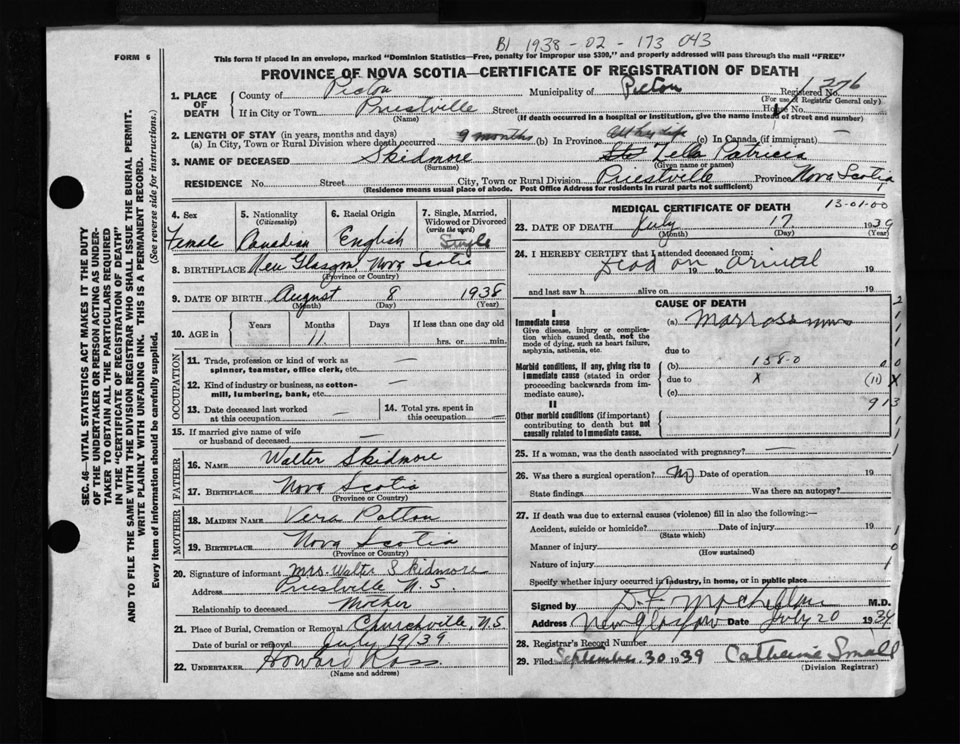 B1 1938-02-173 043
FORM 6
This form if placed in an envelope, marked "Dominion Statistics—Free, penalty for improper use $300," and properly addressed will pass through the mail "FREE"
PROVINCE OF NOVA SCOTIA—CERTIFICATE OF REGISTRATION OF DEATH
1. PLACE OF DEATH County of Pictou Municipality of Pictou Registered No. 1276
(For use of Registrar General only)
If in City or Town Priestville Street House No.
(Name) (If death occurred in a hospital or institution, give the name instead of street and number)
2. LENGTH OF STAY (in years, months and days)
(a) In City, Town or Rural Division where death occurred 9 months (b) In Province all her life (c) In Canada (if immigrant) —
3. NAME OF DECEASED Skidmore Zella Patricia
(Surname) (Given name or names)
RESIDENCE No. Street City, Town or Rural Division Priestville Province Nova Scotia
(Residence means usual place of abode. Post Office Address for residents in rural parts not sufficient)
4. Sex Female
5. Nationality (Citizenship) Canadian
6. Racial Origin English
7. Single, Married, Widowed or Divorced (write the word) Single
8. BIRTHPLACE New Glasgow, Nova Scotia
(Province or Country)
9. DATE OF BIRTH August 8 1938
(Month) (Day) (Year)
10. AGE in Years Months Days If less than one day old
11 hrs. or min.
OCCUPATION
11. Trade, profession or kind of work as spinner, teamster, office clerk, etc. —
12. Kind of industry or business, as cotton-mill, lumbering, bank, etc. —
13. Date deceased last worked at this occupation —
14. Total yrs. spent in this occupation —
15. If married give name of wife or husband of deceased —
FATHER
16. NAME Walter Skidmore
17. BIRTHPLACE Nova Scotia
(Province or Country)
MOTHER
18. MAIDEN NAME Vera Patton
19. BIRTHPLACE Nova Scotia
(Province or Country)
20. Signature of informant Mrs. Walter Skidmore
Address Priestville N.S.
Relationship to deceased Mother
21. Place of Burial, Cremation or Removal Churchville, N.S.
Date of burial or removal July 19/39
22. UNDERTAKER Howard Ross
(Name and address)
MEDICAL CERTIFICATE OF DEATH 13-01-00
23. DATE OF DEATH July 17 1939
(Month) (Day) (Year)
24. I HEREBY CERTIFY that I attended deceased from:
Dead on arrival
19 to 19
and last saw h alive on 19
CAUSE OF DEATH
I
Immediate cause
Give disease, injury or complication which caused death, not the mode of dying, such as heart failure, asphyxia, asthenia, etc.
(a) Marrosamus
due to
Morbid conditions, if any, giving rise to immediate cause (stated in order proceeding backwards from immediate cause).
(b) 158-0
due to X
(c)
II
Other morbid conditions (if important) contributing to death but not causally related to immediate cause.
2
1
1
1
0 0
(11) X
913
1
1
25. If a woman, was the death associated with pregnancy? —
26. Was there a surgical operation? No Date of operation 19
State findings Was there an autopsy?
27. If death was due to external causes (violence) fill in also the following:—
Accident, suicide or homicide? Date of injury 19
(State which)
Manner of injury
(How sustained)
Nature of injury
1
0
1
Specify whether injury occurred in industry, in home, or in public place
Signed by M.D.
Address New Glasgow Date July 20 1939
28. Registrar's Record Number
29. Filed September 30 1939 Catherine Small
(Division Registrar)
SEC. 46—VITAL STATISTICS ACT MAKES IT THE DUTY
OF THE UNDERTAKER OR PERSON ACTING AS UNDER-
TAKER TO OBTAIN ALL THE PARTICULARS REQUIRED
IN THE "CERTIFICATE OF REGISTRATION OF DEATH"
AND TO FILE THE SAME WITH THE DIVISION REGISTRAR WHO SHALL ISSUE THE BURIAL PERMIT.
WRITE PLAINLY WITH UNFADING INK. THIS IS A PERMANENT RECORD.
Every item of information should be carefully supplied. (See reverse side for instructions.)